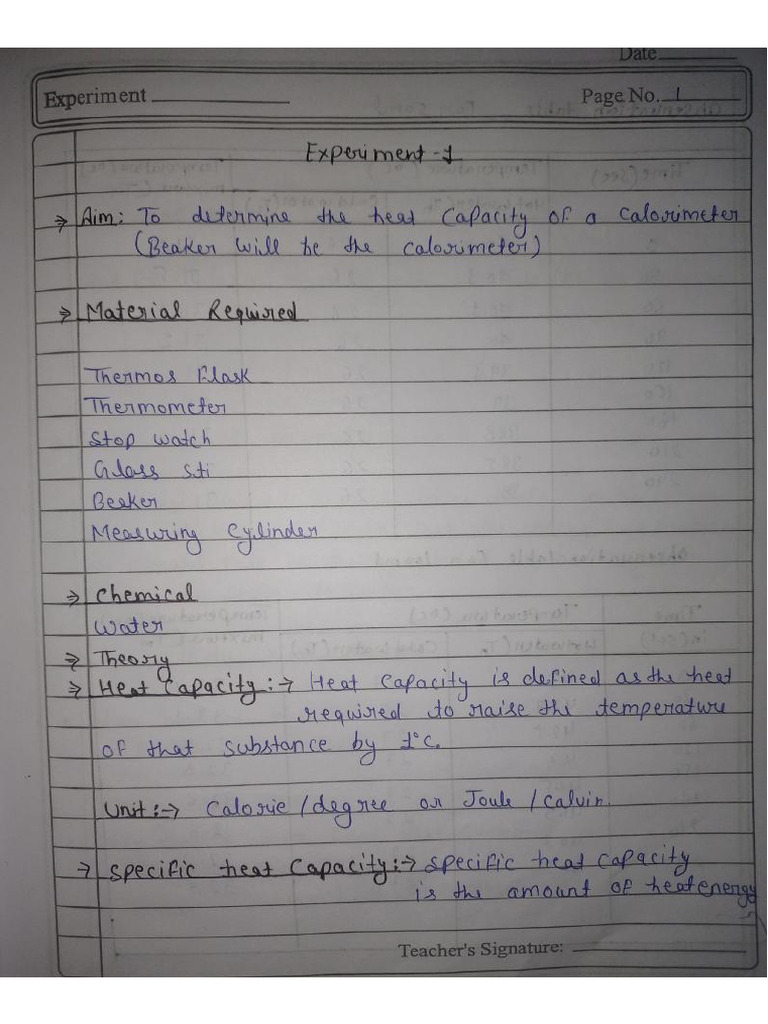 Date
Experiment
Page No. 1
Experiment -1
⇒ Aim: To determine the heat capacity of a calorimeter
(Beaker will be the calorimeter)
⇒ Material Required
Thermos Flask
Thermometer
Stop watch
Glass sti
Beaker
Measuring cylinder
⇒ Chemical
Water
⇒ Theory
⇒ Heat Capacity :→ Heat capacity is defined as the heat
required to raise the temperature
of that substance by 1°C.
Unit :→ Calorie / degree or Joule / calvin
→ Specific heat capacity :→ specific heat capacity
is the amount of heat energy
Teacher's Signature: